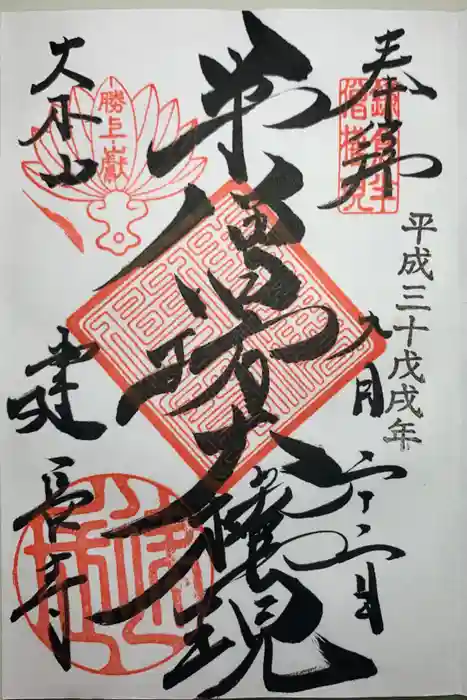 奉拝
平成三十戊戌年
九月
半僧坊大權現
勝上嶽
大本山
建長寺